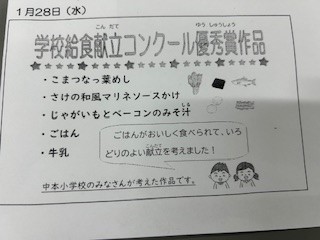 1月28日（水）
こんだて　ゆうしゅうしょう
学校給食献立コンクール優秀賞作品
・こまつなっ葉めし
・さけの和風マリネソースかけ
・じゃがいもとベーコンのみそ汁
・ごはん
・牛乳
ごはんがおいしく食べられて、いろ
どりのよい献立を考えました！
中本小学校のみなさんが考えた作品です。